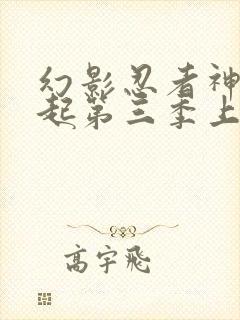 幻影忍者神
起第三季上
高宇飛